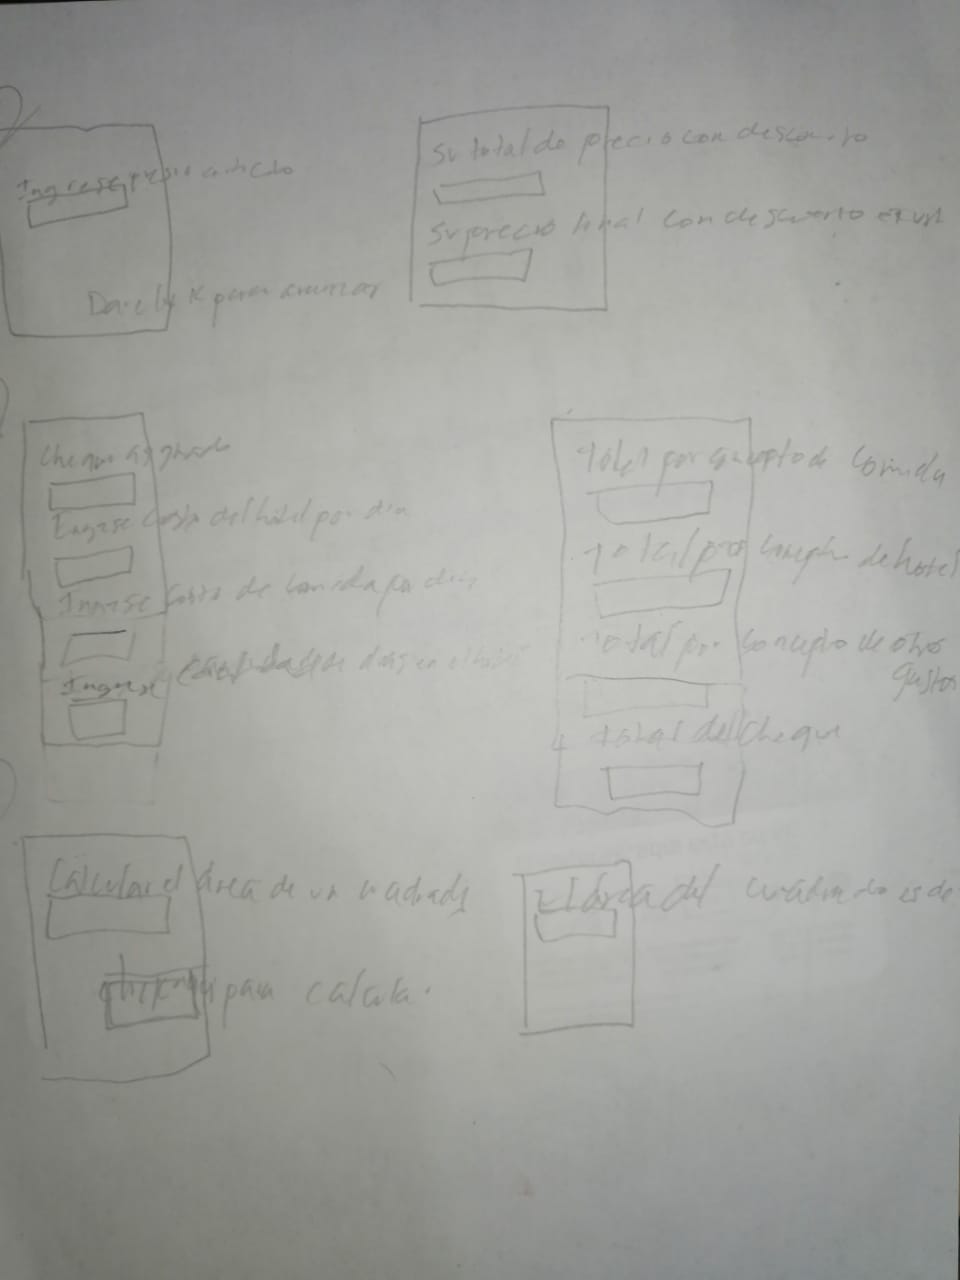 Ingrese precio articulo
Da click para avanzar
Su total de precio con descuento
Su precio final con descuento es
Cheque asignado
Ingrese costo del hotel por dia
Ingrese costo de comida por dia
Ingrese cantidad de dias en el hotel
Total por concepto de comida
Total por concepto de hotel
Total por concepto de otros
gastos
total del cheque
Calcular el área de un cuadrado
click para calcula.
El área del cuadrado es de